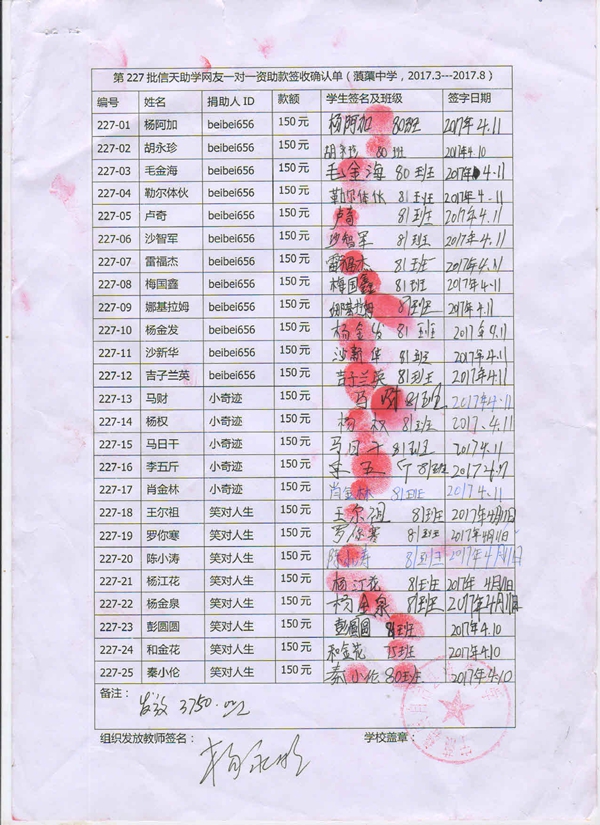 第 227 批信天助学网友一对一资助款签收确认单（蕖中学，2017.3---2017.8）
编号 姓名 捐助人 ID 款额 学生签名及班级 签字日期
227-01 杨阿加 beibei656 150 元 杨阿加 80班 2017年4.11
227-02 胡永珍 beibei656 150 元 胡永珍 80班 2017年4.10
227-03 毛金海 beibei656 150 元 毛金海 80班 2017年4.11
227-04 勒尔体伙 beibei656 150 元 勒尔体伙 81班 2017年4.11
227-05 卢奇 beibei656 150 元 卢奇 81班 2017年4.11
227-06 沙智军 beibei656 150 元 沙智军 81班 2017年4.11
227-07 雷福杰 beibei656 150 元 雷福杰 81班 2017年4.11
227-08 梅国鑫 beibei656 150 元 梅国鑫 81班 2017年4.11
227-09 娜基拉姆 beibei656 150 元 娜基拉姆 81班 2017年4.11
227-10 杨金发 beibei656 150 元 杨金发 81班 2017年4.11
227-11 沙新华 beibei656 150 元 沙新华 81班 2017年4.11
227-12 吉子兰英 beibei656 150 元 吉子兰英 81班 2017年4.11
227-13 马财 小奇迹 150 元 马财 81班 2017年4.11
227-14 杨权 小奇迹 150 元 杨权 81班 2017.4.11
227-15 马日干 小奇迹 150 元 马日干 81班 2017.4.11
227-16 李五斤 小奇迹 150 元 五斤 81班 2017.4.
227-17 肖金林 小奇迹 150 元 肖金林 81班 2017 4.11
227-18 王尔祖 笑对人生 150 元 王尔祖 81班 2017年4月11日
227-19 罗你寒 笑对人生 150 元 罗你寒 81班 2017年4月11日
227-20 陈小涛 笑对人生 150 元 陈小涛 81班 2017年4月11日
227-21 杨江花 笑对人生 150 元 杨江花 81班 2017年 4月11日
227-22 杨金泉 笑对人生 150 元 杨金泉 81班 2017年4月11日
227-23 彭圆圆 笑对人生 150 元 彭圆圆 81班 2017年4.10
227-24 和金花 笑对人生 150 元 和金花 75班 2017年4.10
227-25 秦小伦 笑对人生 150 元 秦小伦 80班 2017年4.10
备注：
发放 3750.
组织发放教师签名： 学校盖章：